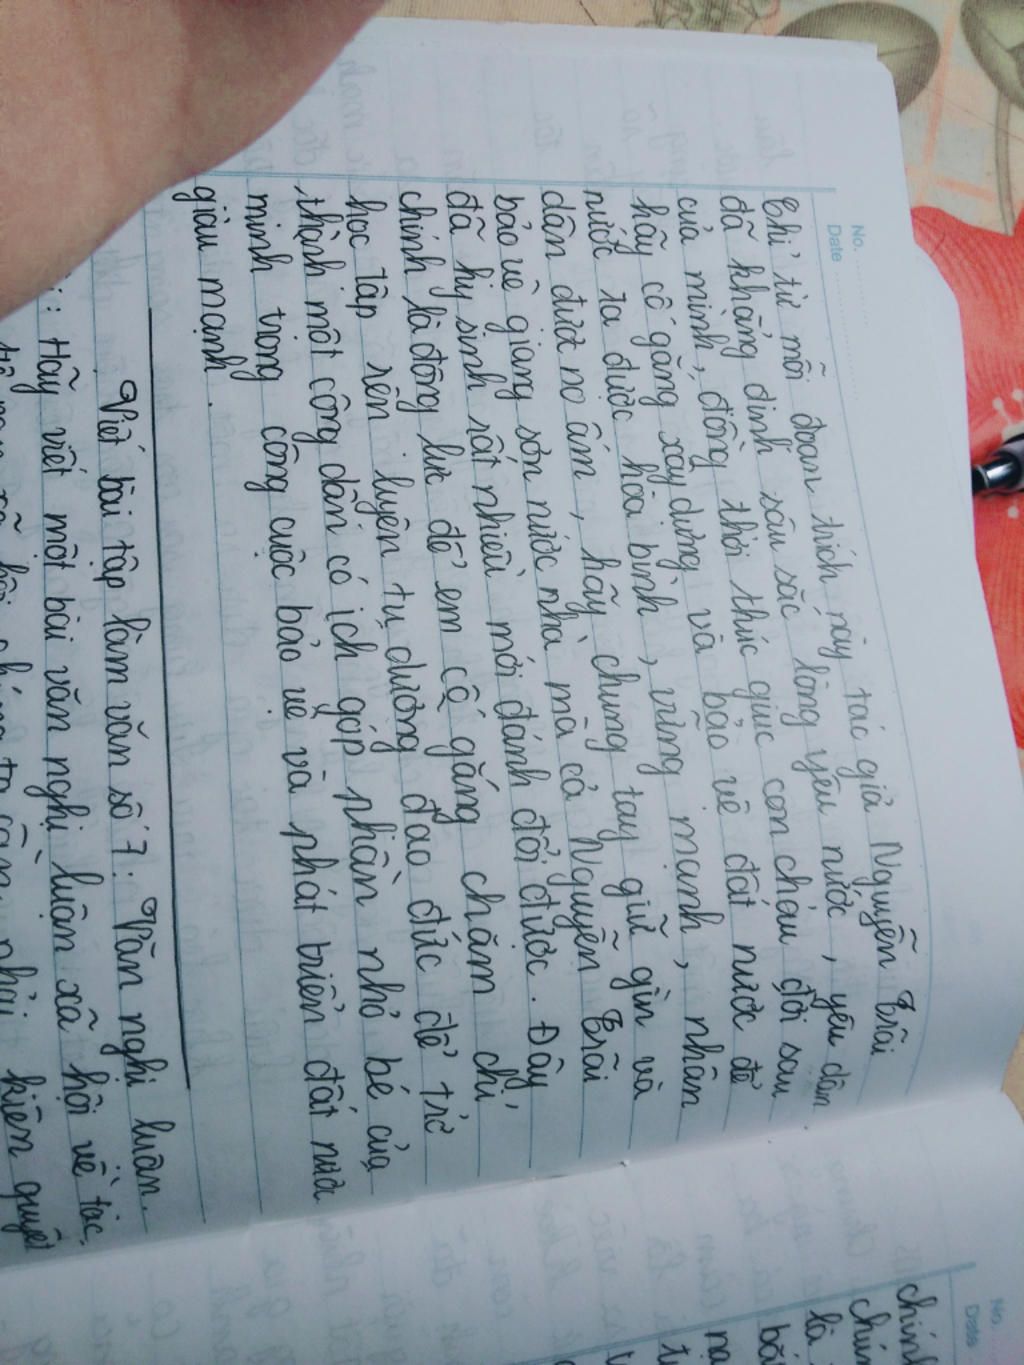 No.
Date
Chỉ từ mỗi đoạn trích này tác giả Nguyễn Trãi
đã khẳng định sâu sắc lòng yêu nước, yêu dân
của mình, đồng thời thúc giục con cháu đời sau
hãy cố gắng xây dựng và bảo vệ đất nước để
nước ta được hòa bình, vững mạnh, nhân
dân được no ấm, hãy chung tay giữ gìn và
bảo vệ giang sơn nước nhà mà cả Nguyễn Trãi
đã hy sinh rất nhiều mới đánh đổi được. Đây
chính là động lực để em cố gắng chăm chỉ
học tập rèn luyện tu dưỡng đạo đức để trở
thành một công dân có ích góp phần nhỏ bé của
mình trong công cuộc bảo vệ và phát triển đất nước
giàu mạnh.
Viết bài tập làm văn số 7: Văn nghị luận.
: Hãy viết một bài văn nghị luận xã hội về tác
kiên quyết
No.
Date
là